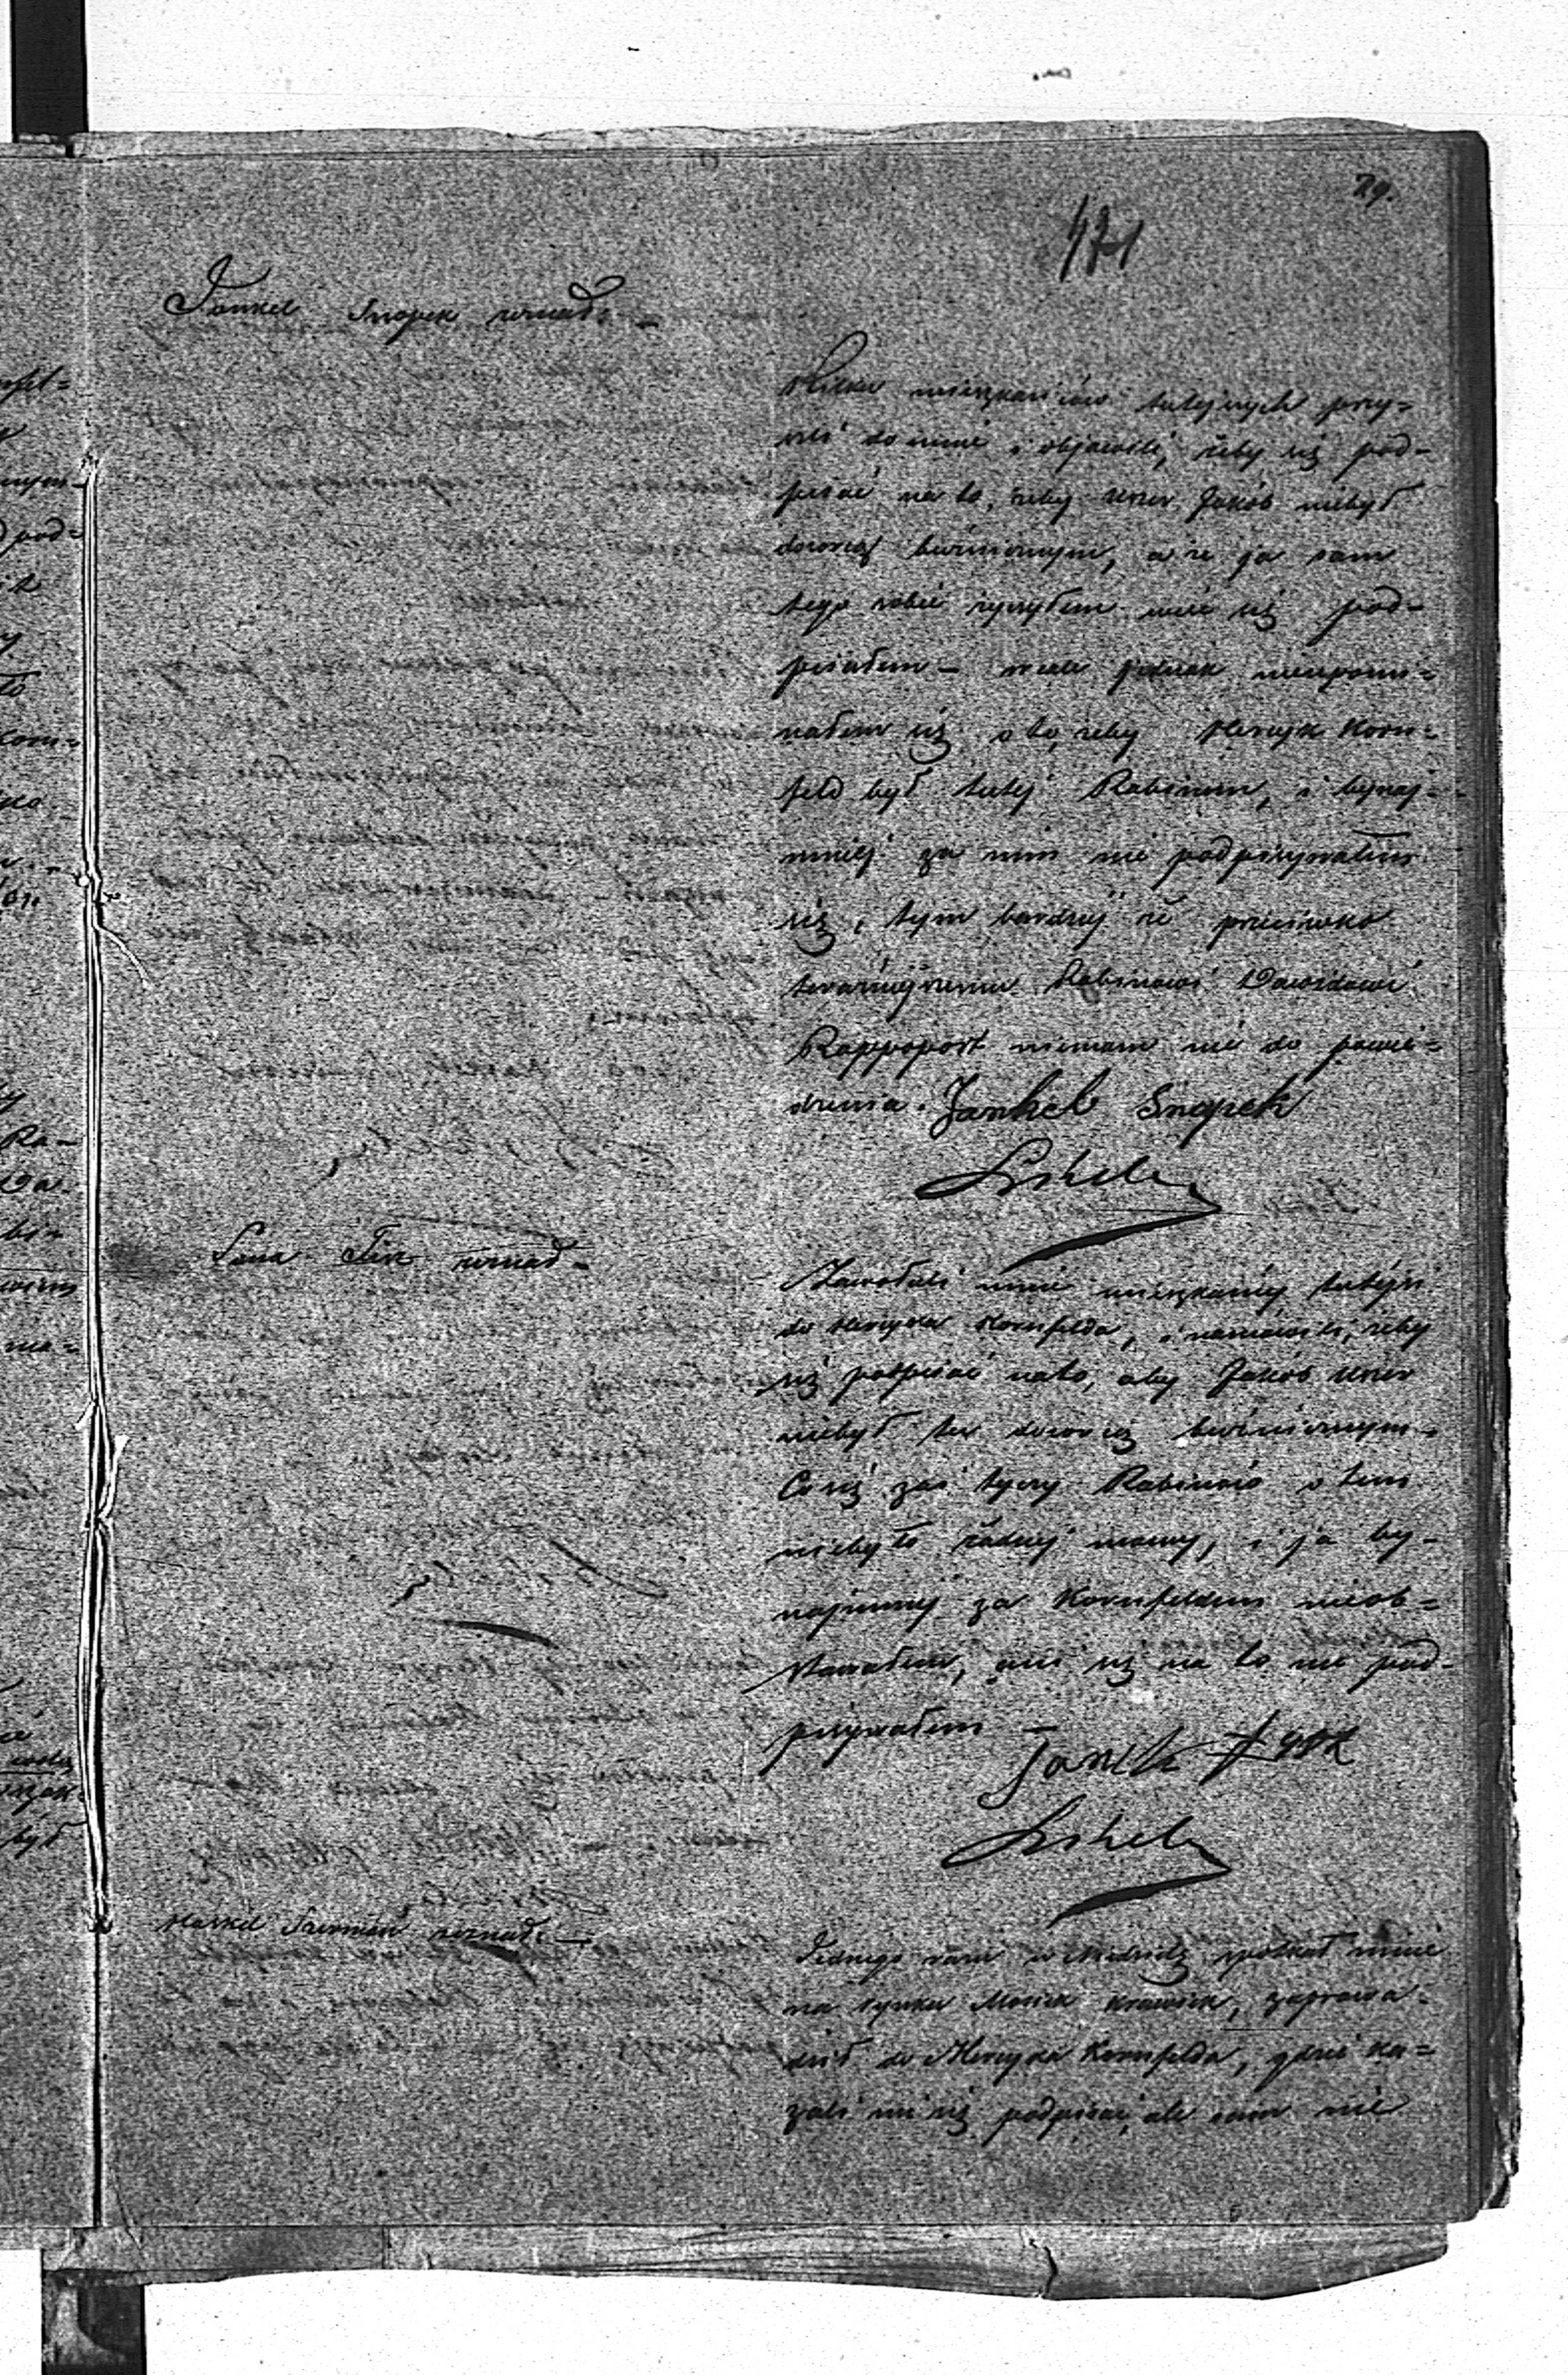 79.
471
Jankel Snopek zeznał: —
Kilku mieszkańców tutejszych przy=
szli do mnie i objawili, żeby się pod=
pisać na to, żeby Uszer Jakób niebył
dozorcą bużnicznym, a że ja sam
tego sobie życzyłem więc się pod=
pisałem — wcale jednak nieupomi=
nałem się o to, żeby Herszyk Korn=
feld był tutej Rabinem, i bynaj=
mniej za nim nie podpisywałem
się, tym bardziej że przeciwko
teraźniejszemu Rabinowi Dawidowi
Rappoport niemam nic do powie=
dzenia. Jankel Snopek
zeznał —
Zawołali mnie mieszkańcy tutejsi
do Herszyka Kornfelda, i namówili, żeby
się podpisać na to, aby Jakób Uszer
niebył tu dozorcą bużnicznym —
Co się zaś tyczy Rabinów o tem
niebyło żadnej mowy, i ja by=
najmniej za Kornfeldem nieob=
stawałem, ani się na to nie pod=
pisywałem —
Haskel Szerman zeznał: —
Jednego razu w Niedzielę spotkał mnie
na rynku Mosiek Krawiek, zaprowa=
dził do Herszyka Kornfelda, gdzie ka=
zali mi się podpisać, ale sam nie